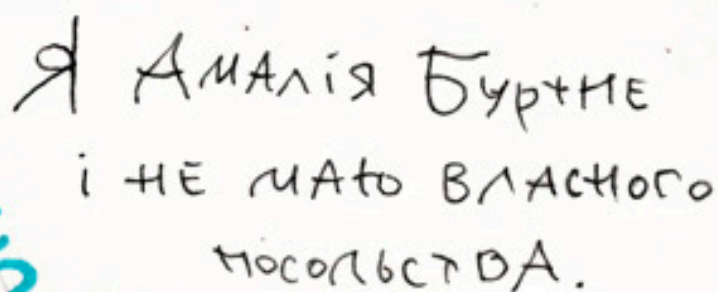 Я Амалія Буртне
і не маю власного
посольства.